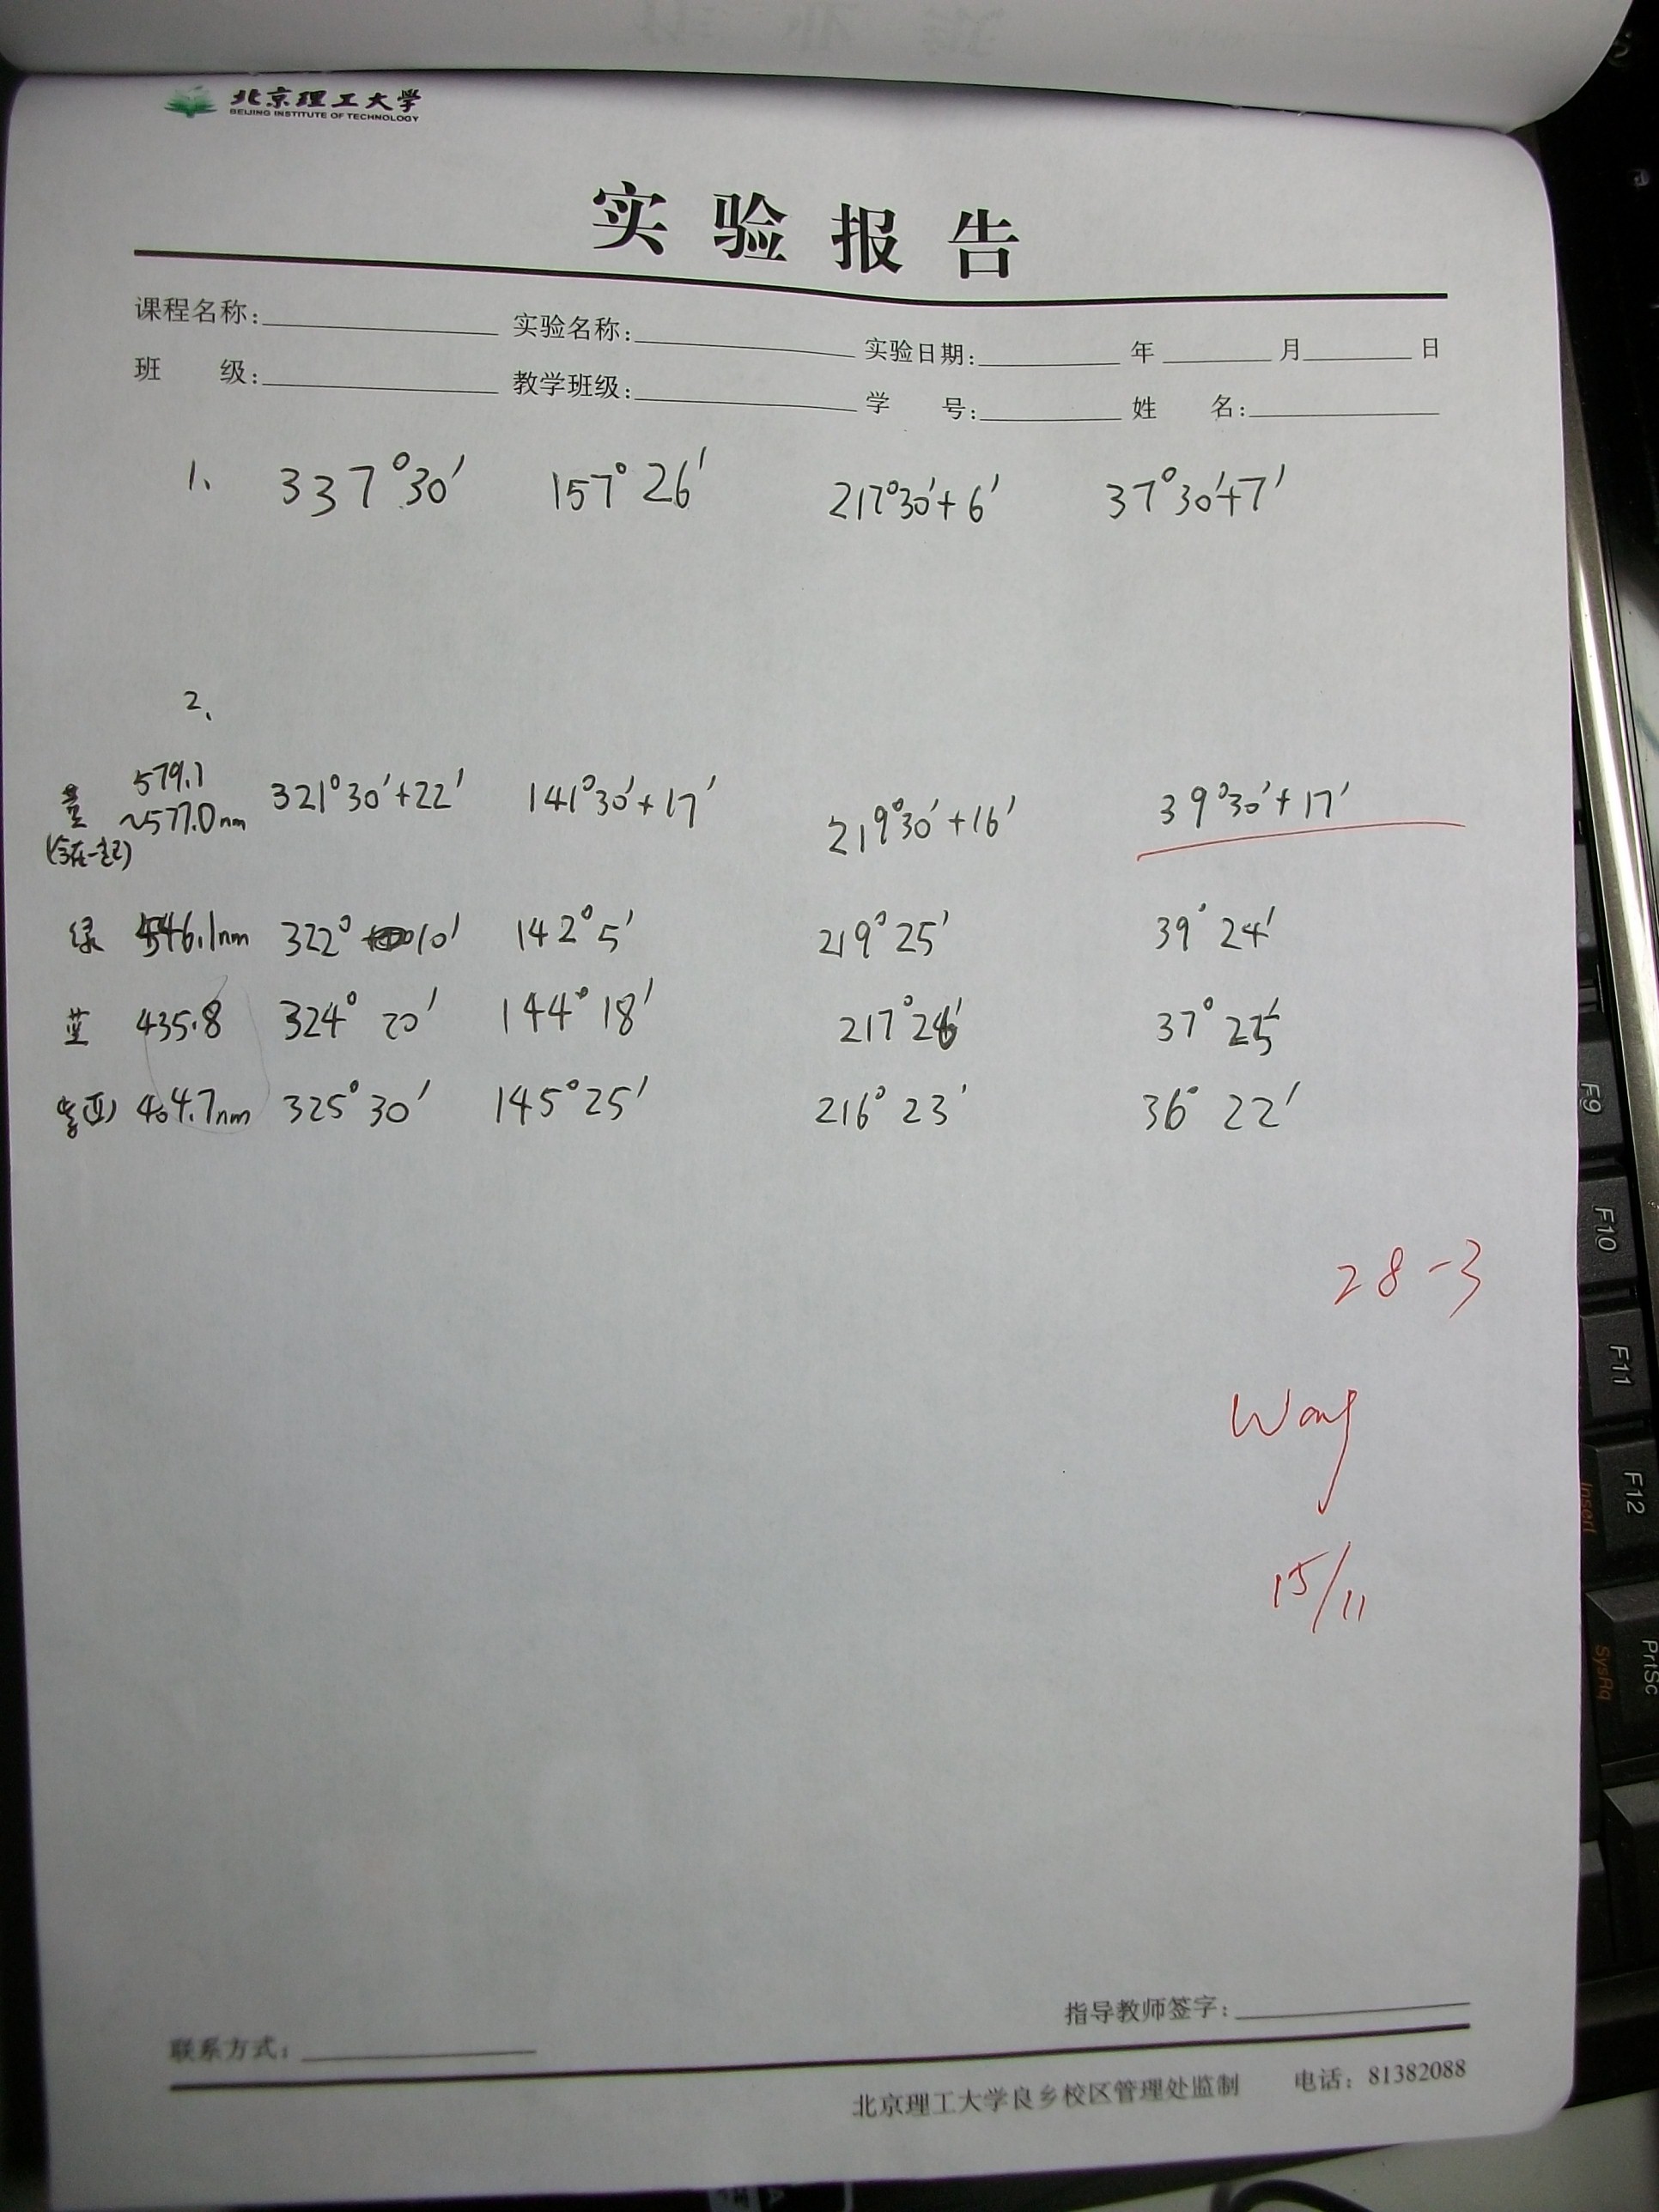 北京理工大学
BEIJING INSTITUTE OF TECHNOLOGY
实验报告
课程名称: 实验名称: 实验日期: 年 月 日
班 级: 教学班级: 学 号: 姓 名:
1、 337°30′ 157°26′ 217°30′+6′ 37°30′+7′
2、
黄 579.1 ~577.0nm 321°30′+22′ 141°30′+17′ 219°30′+16′ 39°30′+17′
(合在一起)
绿 546.1nm 322°10′ 142°5′ 219°25′ 39°24′
蓝 435.8 324°20′ 144°18′ 217°26′ 37°25′
紫 404.7nm 325°30′ 145°25′ 216°23′ 36°22′
28-3
Wang
15/11
指导教师签字:
联系方式:
北京理工大学良乡校区管理处监制 电话: 81382088
F9
F10
F11
F12
Insert
PrtSc
SysRq